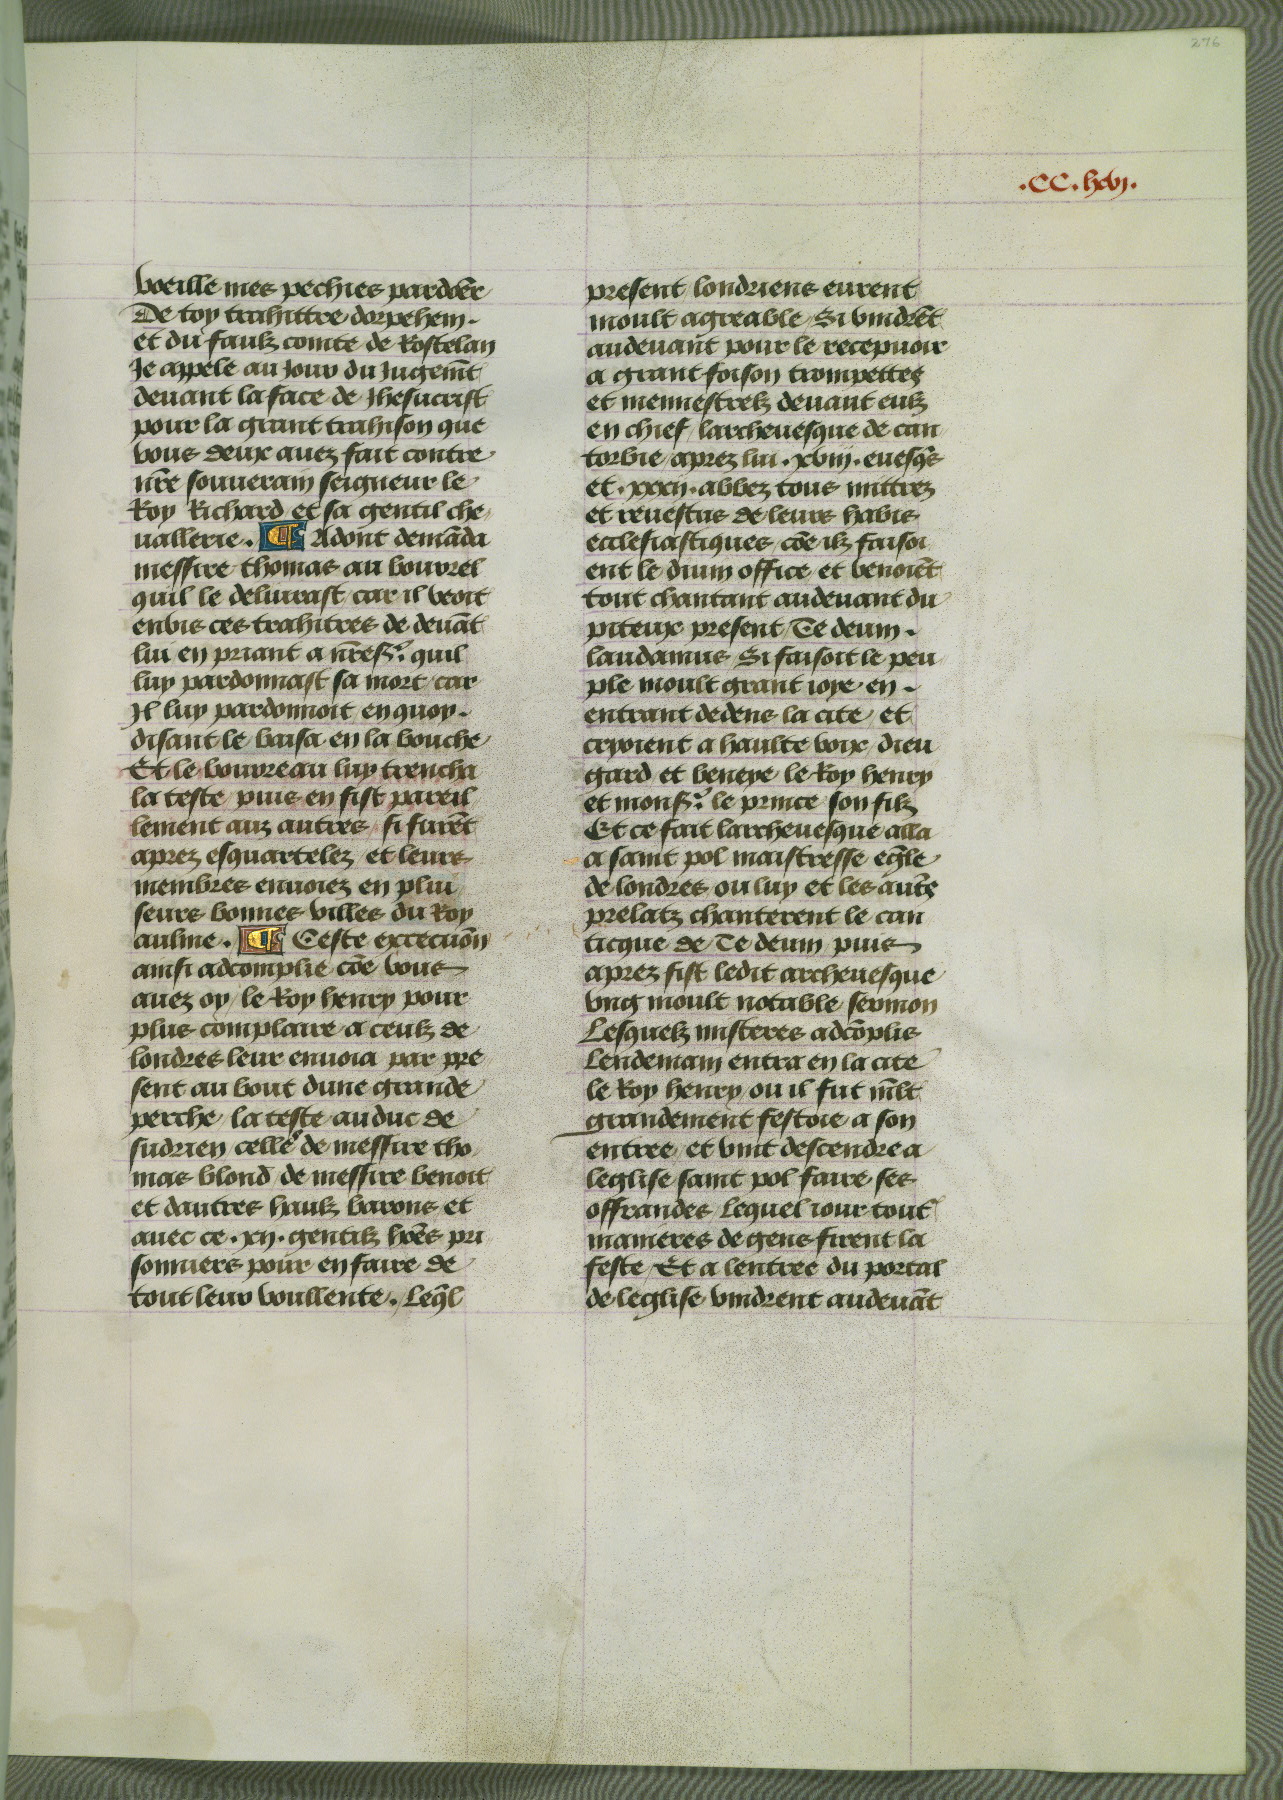 276
.CC.lxxvj.
voeille mes pechies pardoñer
De toy trahittre dorpehem.
et du faulz comte de Rostelan
Je appele au Jour du Jugemt̄
deuant la face de Jhesucrist
pour la grant trahison que
vous deux auez fait contre
nr̄e souuerain seigneur le
Roy Richard et sa gentil che
uallerie. ¶ Adont demāda
messire thomas au bourrel
quil le deliurast car il veoit
enuis ces trahitres de deuāt
lui en priant a nr̄e sr̄. quil
luy pardonnast sa mort car
Il luy pardonnoit en quoy.
disant le baisa en la bouche
Et le bourreau luy trencha
la teste puis en fist pareil
lement aux autres / si furēt
aprez esquartelez et leurs
membres enuoiez en plui
seurs bonnes villes du Roy
aulme. ¶ Ceste execucion̄
ainsi adcomplie cōe vous
auez oy / le Roy henry pour
plus complaire a ceulz de
londres leur enuoia par pre
sent au bout dune grande
perche / la teste au duc de
sudrien celle de messire tho
mas blond de messire benoit
et dautres haulz barons et
auec ce .xij. gentilz hōes pri
sonniers pour en faire de
tout leur voullente. Leql̄
present londriens eurent
moult agreable / Si vindrēt
audeuant pour le recepuoir
a grant foison trompettes
et menestrelz deuant eulz
en chief / larcheuesque de can
torbie / aprez lui .xviij. euesq̄s
et .xxxij. abbez tous mittrez
et reuestus de leurs habis
ecclesiastiques / cōe ilz faisoi
ent le diuin office et venoiēt
tout chantant audeuant du
piteux present / Te deum.
laudamus Si faisoit le peu
ple moult grant ioye en.
entrant dedens la cite et
cryoient a haulte voix / dieu
gard et beneye le Roy henry
et monsr̄. le prince son filz
Et ce fait larcheuesque alla
a saint pol maistresse egl̄e
de londres ou luy et les autr̄s
prelatz chanterent le can
ticque de Te deum puis
aprez fist ledit archeuesque
vng moult notable sermon
Lesquelz misteres adcōplis
Lendemain entra en la cite
le Roy henry / ou il fut ml̄t
grandement festoie a son
entree / et vint descendre a
leglise saint pol faire ses
offrandes / Lequel iour tout
manieres de gens firent la
feste / Et a lentree du portal
de leglise vindrent audeuāt